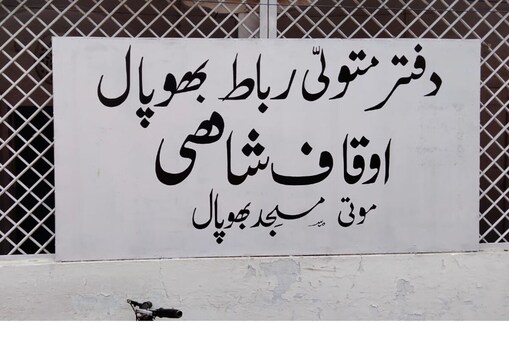 دفتر متولّی رباط بھوپال
اوقاف شاھی
موتی مسجد بھوپال